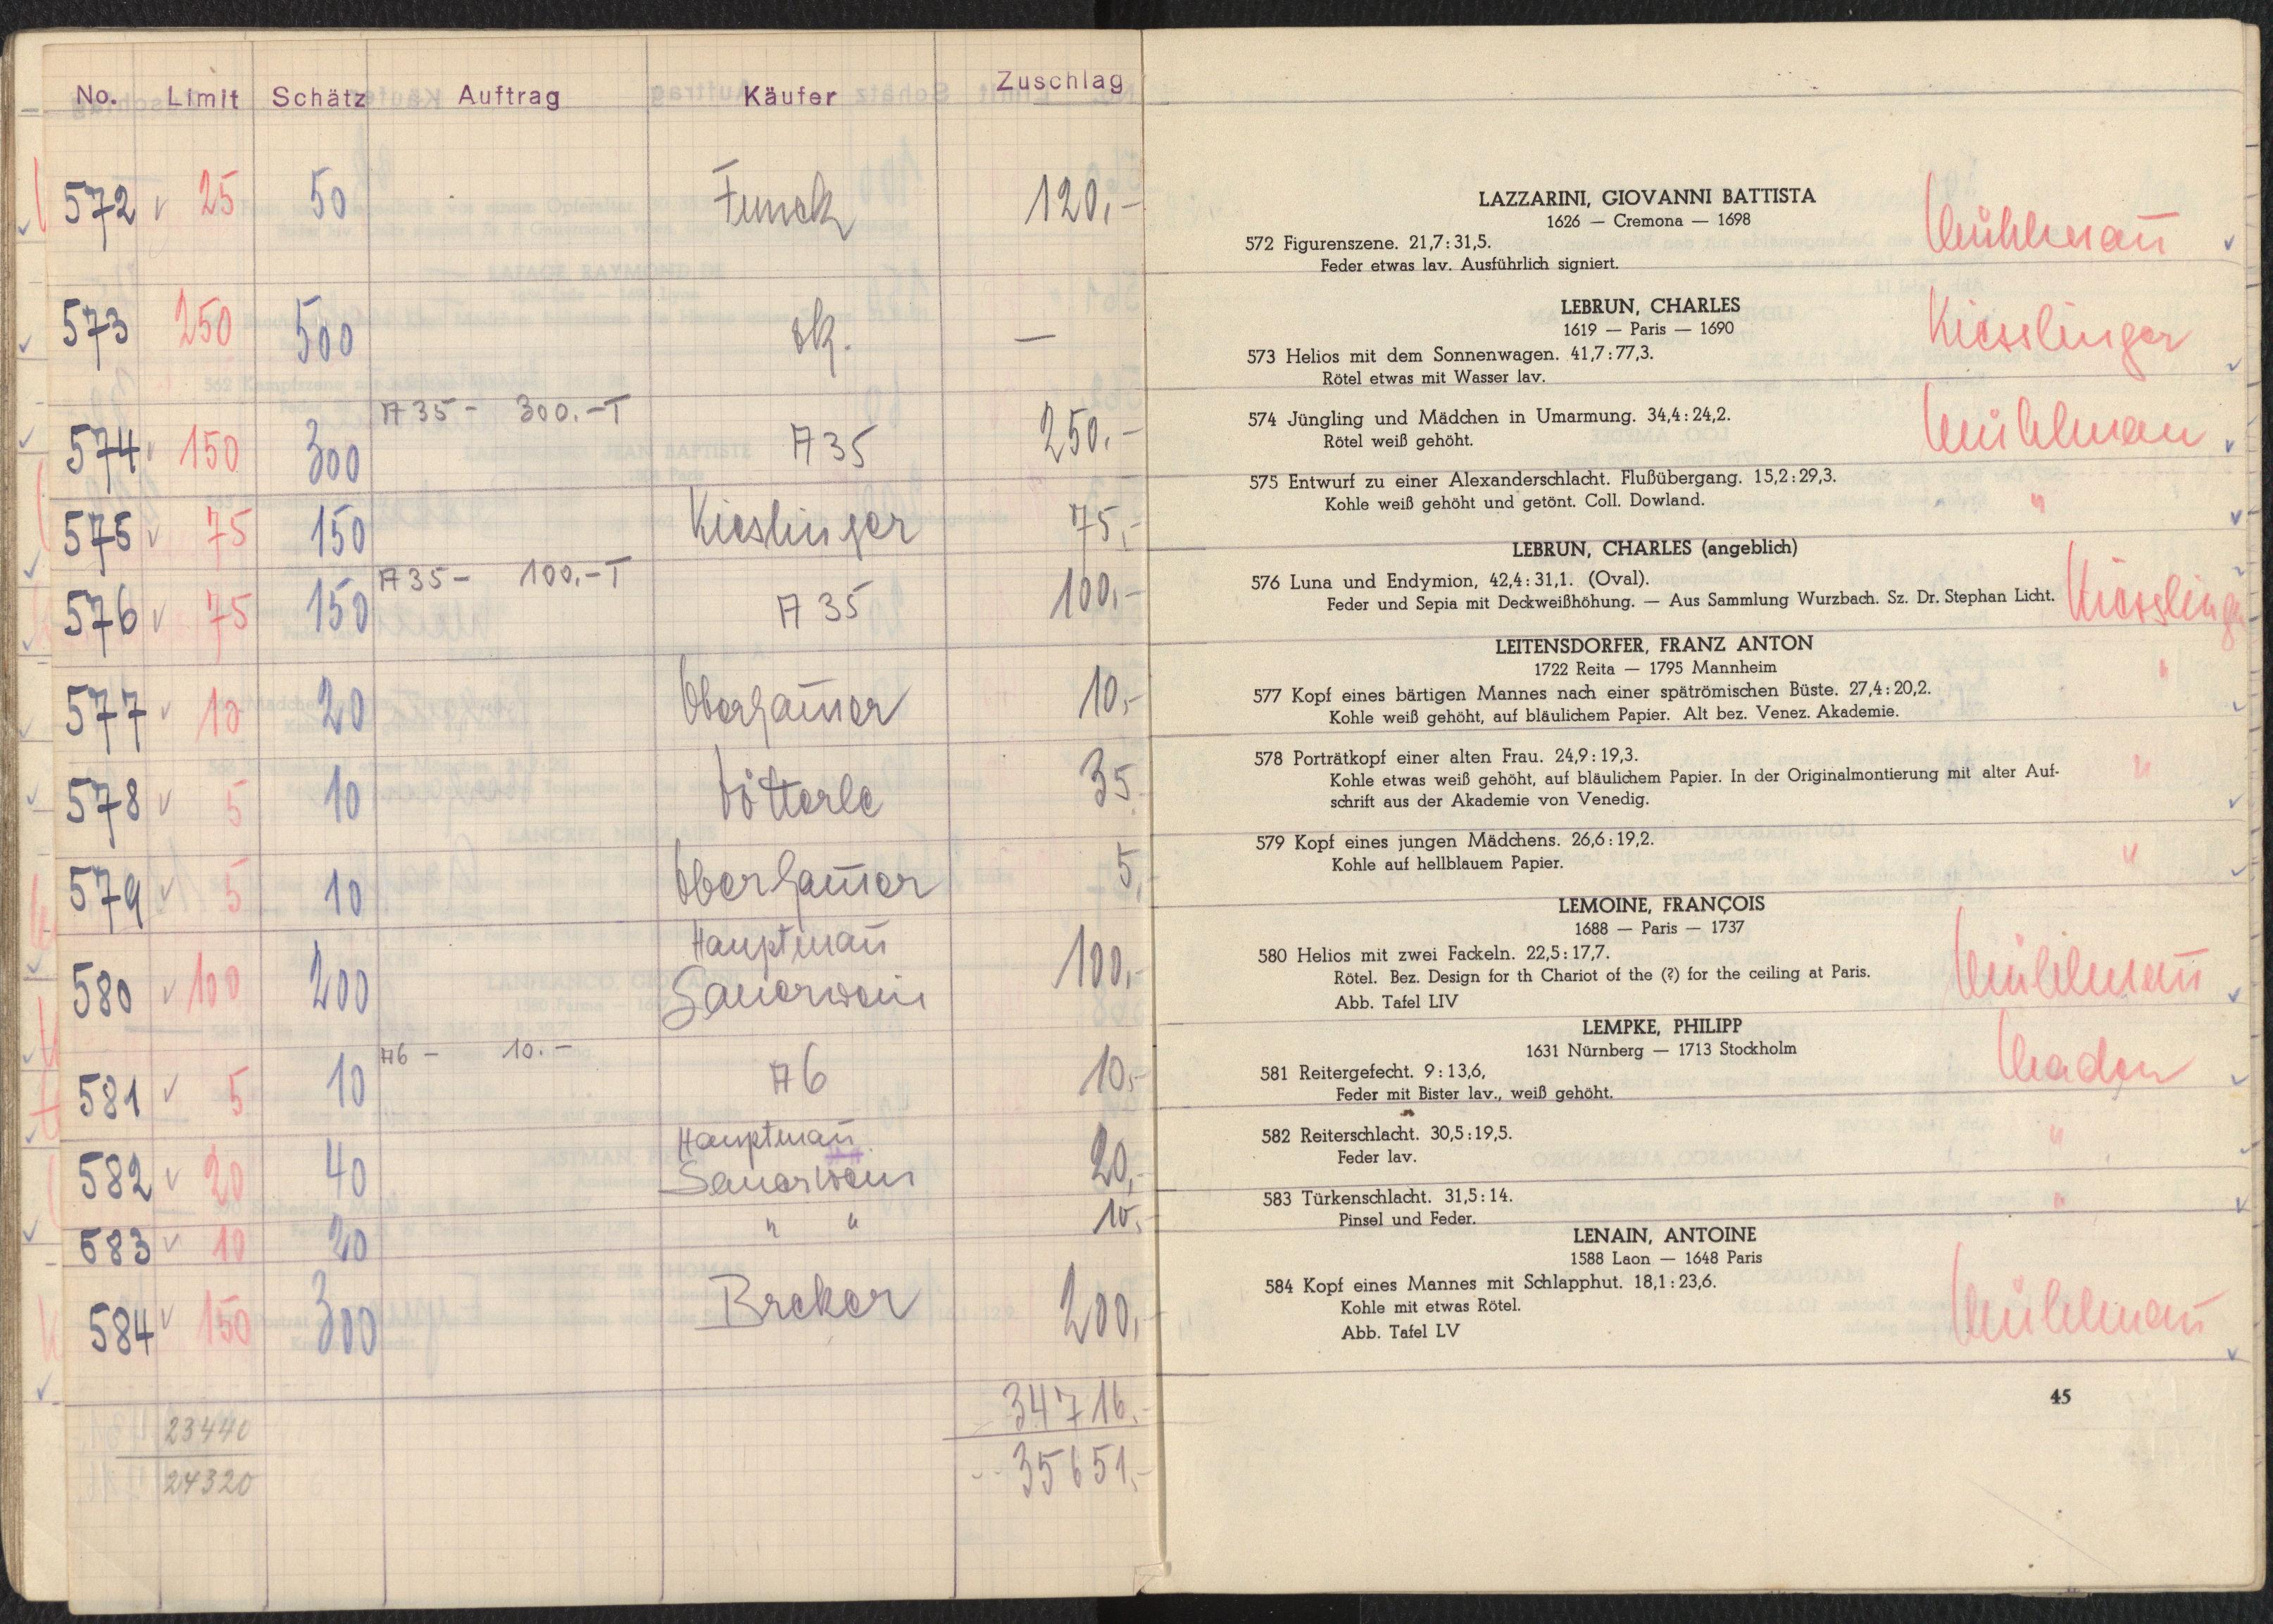 No. Limit Schätz Auftrag Käufer Zuschlag
572 ✓ 25 50 Funck 120,-
573 250 500 zk. —
A 35 - 300.-T
574 ✓ 150 300 A 35 250,-
575 ✓ 75 150 Kieslinger 75,-
A 35 - 100.-T
576 ✓ 75 150 A 35 100,-
577 ✓ 10 20 10,-
578 ✓ 5 10 35
579 ✓ 5 10 5,
Hauptmañ
580 ✓ 100 200 Sauerwein 100,-
A6 - 10.-
581 ✓ 5 10 A6 10,-
Hauptmañ
582 ✓ 20 40 Sauerwein 20,-
583 ✓ 10 20 " " 10,
584 ✓ 150 300 Breker 200,-
34716,-
23440
35651,-
24320
LAZZARINI, GIOVANNI BATTISTA
1626 — Cremona — 1698
572 Figurenszene. 21,7:31,5. Mühlmañ
Feder etwas lav. Ausführlich signiert.
LEBRUN, CHARLES
1619 — Paris — 1690 Kiesslinger
573 Helios mit dem Sonnenwagen. 41,7:77,3.
Rötel etwas mit Wasser lav.
574 Jüngling und Mädchen in Umarmung. 34,4:24,2. Mühlman
Rötel weiß gehöht.
575 Entwurf zu einer Alexanderschlacht. Flußübergang. 15,2:29,3.
Kohle weiß gehöht und getönt. Coll. Dowland. "
LEBRUN, CHARLES (angeblich)
576 Luna und Endymion, 42,4:31,1. (Oval).
Feder und Sepia mit Deckweißhöhung. — Aus Sammlung Wurzbach. Sz. Dr. Stephan Licht. Kiesslinger
LEITENSDORFER, FRANZ ANTON
1722 Reita — 1795 Mannheim "
577 Kopf eines bärtigen Mannes nach einer spätrömischen Büste. 27,4:20,2.
Kohle weiß gehöht, auf bläulichem Papier. Alt bez. Venez. Akademie.
578 Porträtkopf einer alten Frau. 24,9:19,3. "
Kohle etwas weiß gehöht, auf bläulichem Papier. In der Originalmontierung mit alter Auf-
schrift aus der Akademie von Venedig.
579 Kopf eines jungen Mädchens. 26,6:19,2. "
Kohle auf hellblauem Papier.
LEMOINE, FRANÇOIS
1688 — Paris — 1737
580 Helios mit zwei Fackeln. 22,5:17,7. Mühlmañ
Rötel. Bez. Design for th Chariot of the (?) for the ceiling at Paris.
Abb. Tafel LIV
LEMPKE, PHILIPP
1631 Nürnberg — 1713 Stockholm
581 Reitergefecht. 9:13,6,
Feder mit Bister lav., weiß gehöht.
582 Reiterschlacht. 30,5:19,5. "
Feder lav.
583 Türkenschlacht. 31,5:14. "
Pinsel und Feder.
LENAIN, ANTOINE
1588 Laon — 1648 Paris
584 Kopf eines Mannes mit Schlapphut. 18,1:23,6.
Kohle mit etwas Rötel. Mühlmañ
Abb. Tafel LV
45